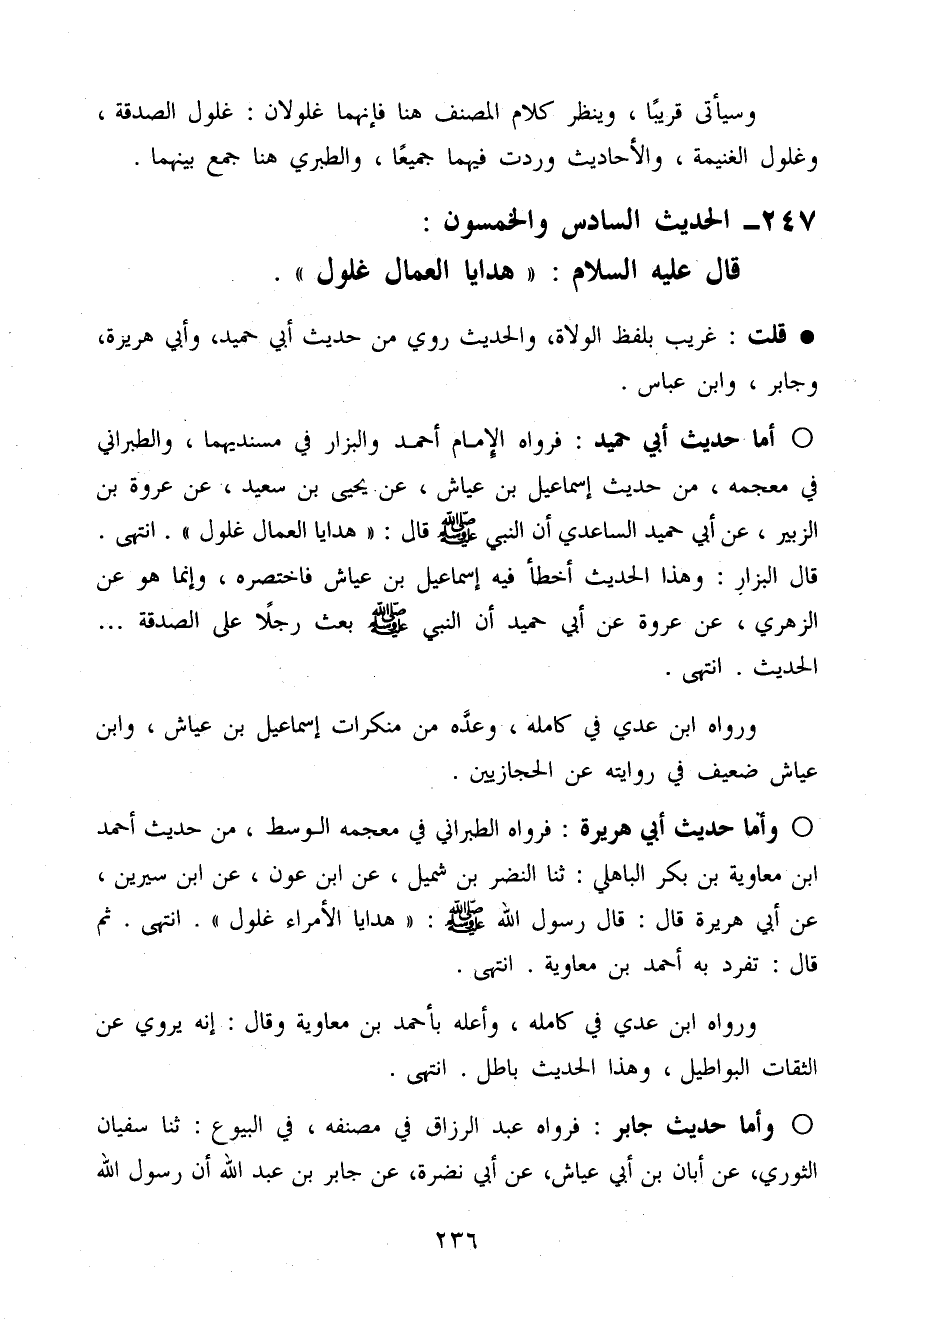 وسيأتى قريبًا ، وينظر كلام المصنف هنا فإنهما غلولان : غلول الصدقة ،
وغلول الغنيمة ، والأحاديث وردت فيهما جميعًا ، والطبري هنا جمع بينهما .
٢٤٧ـ الحديث السادس والخمسون :
قال عليه السلام : « هدايا العمال غلول » .
● قلت : غريب بلفظ الولاة، والحديث روي من حديث أبي حميد، وأبي هريزة،
وجابر ، وابن عباس .
○ أما حديث أبي حميد : فرواه الإمـام أحمـد والبزار في مسنديهما ، والطبراني
في معجمه ، من حديث إسماعيل بن عياش ، عن يحيى بن سعيد ، عن عروة بن
الزبير ، عن أبي حميد الساعدي أن النبي ﷺ قال : « هدايا العمال غلول » . انتهى .
قال البزار : وهذا الحديث أخطأ فيه إسماعيل بن عياش فاختصره ، وإنما هو عن
الزهري ، عن عروة عن أبي حميد أن النبي ﷺ بعث رجلًا على الصدقة ...
الحديث . انتهى .
ورواه ابن عدي في كامله ، وعدَّه من منكرات إسماعيل بن عياش ، وابن
عياش ضعيف في روايته عن الحجازيين .
○ وأما حديث أبي هريرة : فرواه الطبراني في معجمه الـوسط ، من حديث أحمد
ابن معاوية بن بكر الباهلي : ثنا النضر بن شميل ، عن ابن عون ، عن ابن سيرين ،
عن أبي هريرة قال : قال رسول الله ﷺ : « هدايا الأمراء غلول » . انتهى . ثم
قال : تفرد به أحمد بن معاوية . انتهى .
ورواه ابن عدي في كامله ، وأعله بأحمد بن معاوية وقال : إنه يروي عن
الثقات البواطيل ، وهذا الحديث باطل . انتهى .
○ وأما حديث جابر : فرواه عبد الرزاق في مصنفه ، في البيوع : ثنا سفيان
الثوري، عن أبان بن أبي عياش، عن أبي نضرة، عن جابر بن عبد الله أن رسول الله
٢٣٦